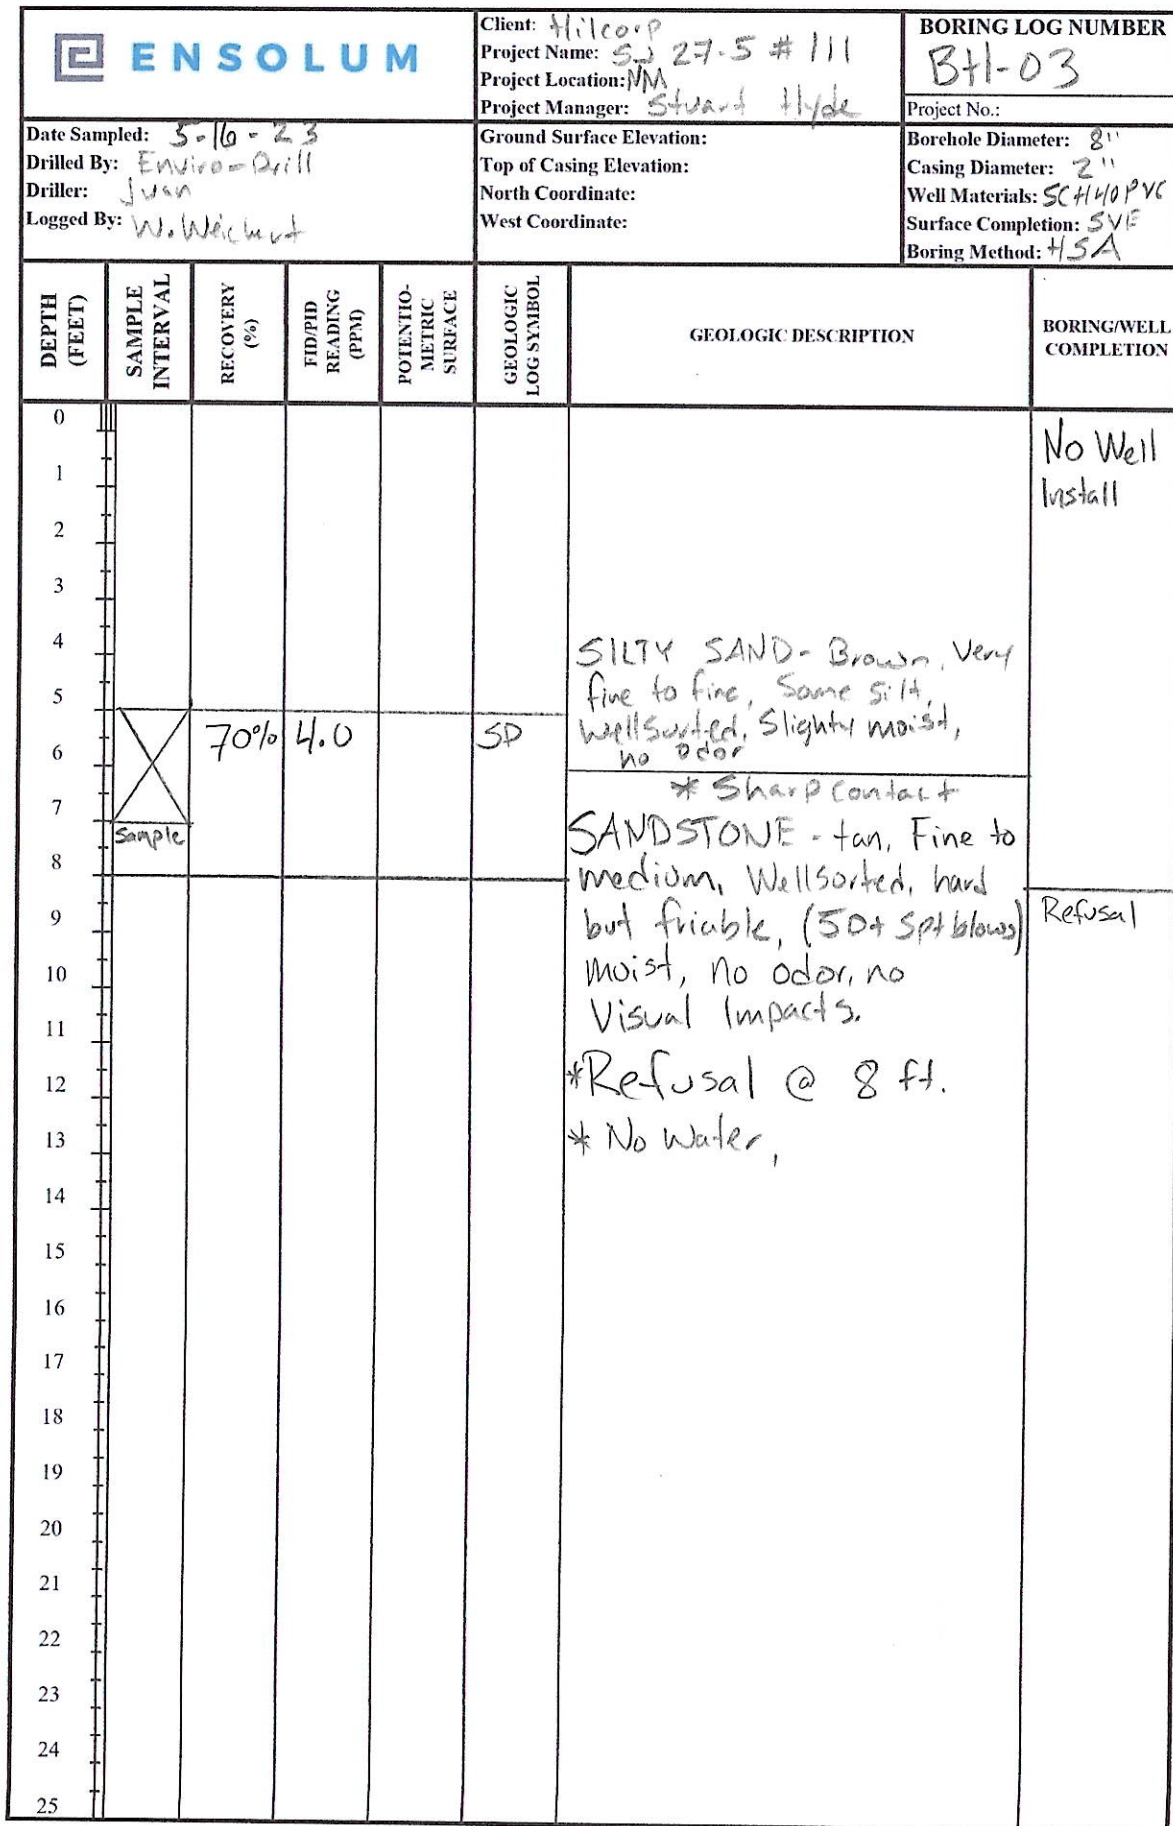 ENSOLUM
Client: Hilcorp
Project Name: SJ 27-5 # 111
Project Location: NM
Project Manager: Stuart Hyde
BORING LOG NUMBER
BH-03
Project No.:
Date Sampled: 5-16-23
Drilled By: Enviro-Drill
Driller: Juan
Logged By: W. Weichert
Ground Surface Elevation:
Top of Casing Elevation:
North Coordinate:
West Coordinate:
Borehole Diameter: 8"
Casing Diameter: 2"
Well Materials: SCH40 PVC
Surface Completion: SVE
Boring Method: HSA
DEPTH (FEET)
SAMPLE INTERVAL
RECOVERY (%)
FID/PID READING (PPM)
POTENTIO-METRIC SURFACE
GEOLOGIC LOG SYMBOL
GEOLOGIC DESCRIPTION
BORING/WELL COMPLETION
0
No Well
1
Install
2
3
4
SILTY SAND - Brown, Very
fine to fine, Some silt,
5
Wellsorted, Slighty moist,
70% 4.0 SP
no odor
6
* Sharp Contact
7
SANDSTONE - tan, Fine to
Sample
8
medium, Wellsorted, hard
9
but friable, (50+ Spt blows)
Refusal
10
moist, no odor, no
11
Visual Impacts.
12
*Refusal @ 8 ft.
13
* No Water,
14
15
16
17
18
19
20
21
22
23
24
25